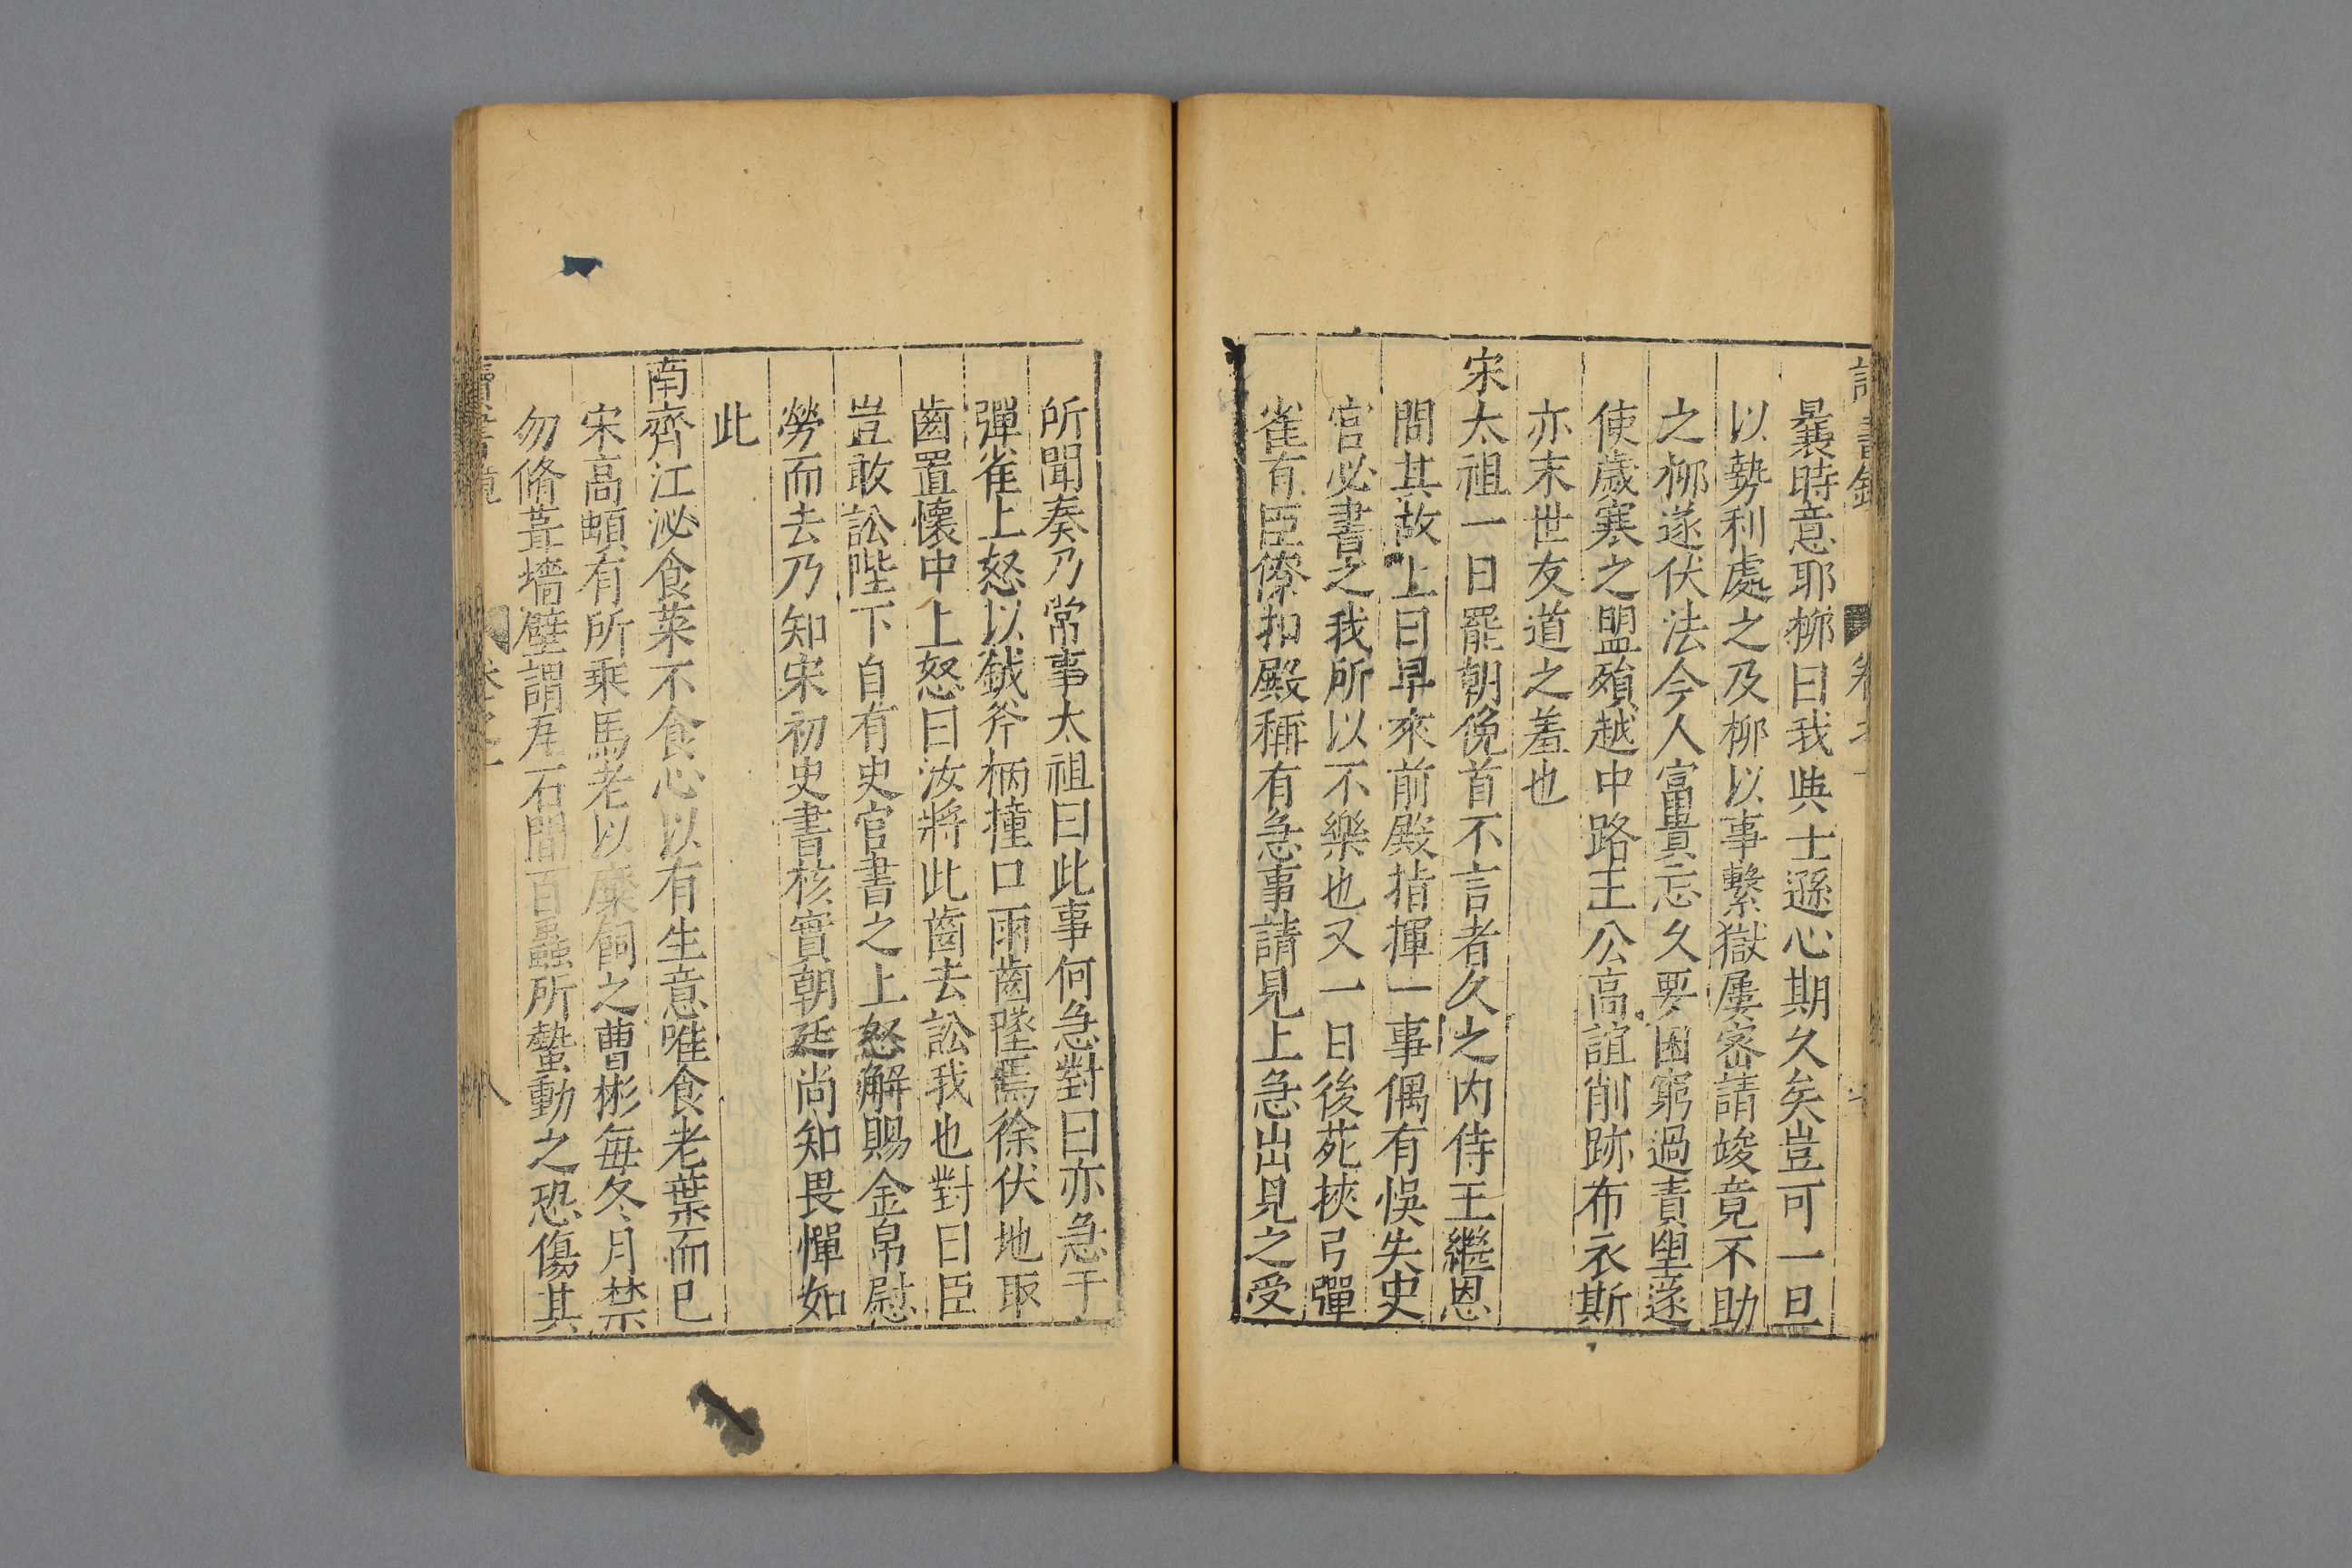 曩時意耶栁曰我與士遜心期久矣豈可一旦
以勢利處之及栁以事繫獄屢密請竣竟不助
之栁遂伏法今人富貴忘久要困窮過責望遂
使歲寒之盟殞越中路王公高誼削跡布衣斯
亦末世友道之羞也
宋太祖一日罷朝俛首不言者久之内侍王繼恩
問其故上曰早來前殿指揮一事偶有悞失史
官必書之我所以不樂也又一日後苑挾弓彈
雀有臣僚扣殿稱有急事請見上急出見之受
所聞奏乃常事太祖曰此事何急對曰亦急于
彈雀上怒以鉞斧柄撞口兩齒墜焉徐伏地取
齒置懷中上怒曰汝將此齒去訟我也對曰臣
豈敢訟陛下自有史官書之上怒解賜金帛慰
勞而去乃知宋初史書核實朝廷尚知畏憚如
此
南齊江泌食菜不食心以有生意唯食老葉而已
宋高䫫有所乘馬老以糜飼之曹彬每冬月禁
勿脩葺墻壁謂瓦石間百蟲所蟄動之恐傷其
讀書鏡 卷之 八